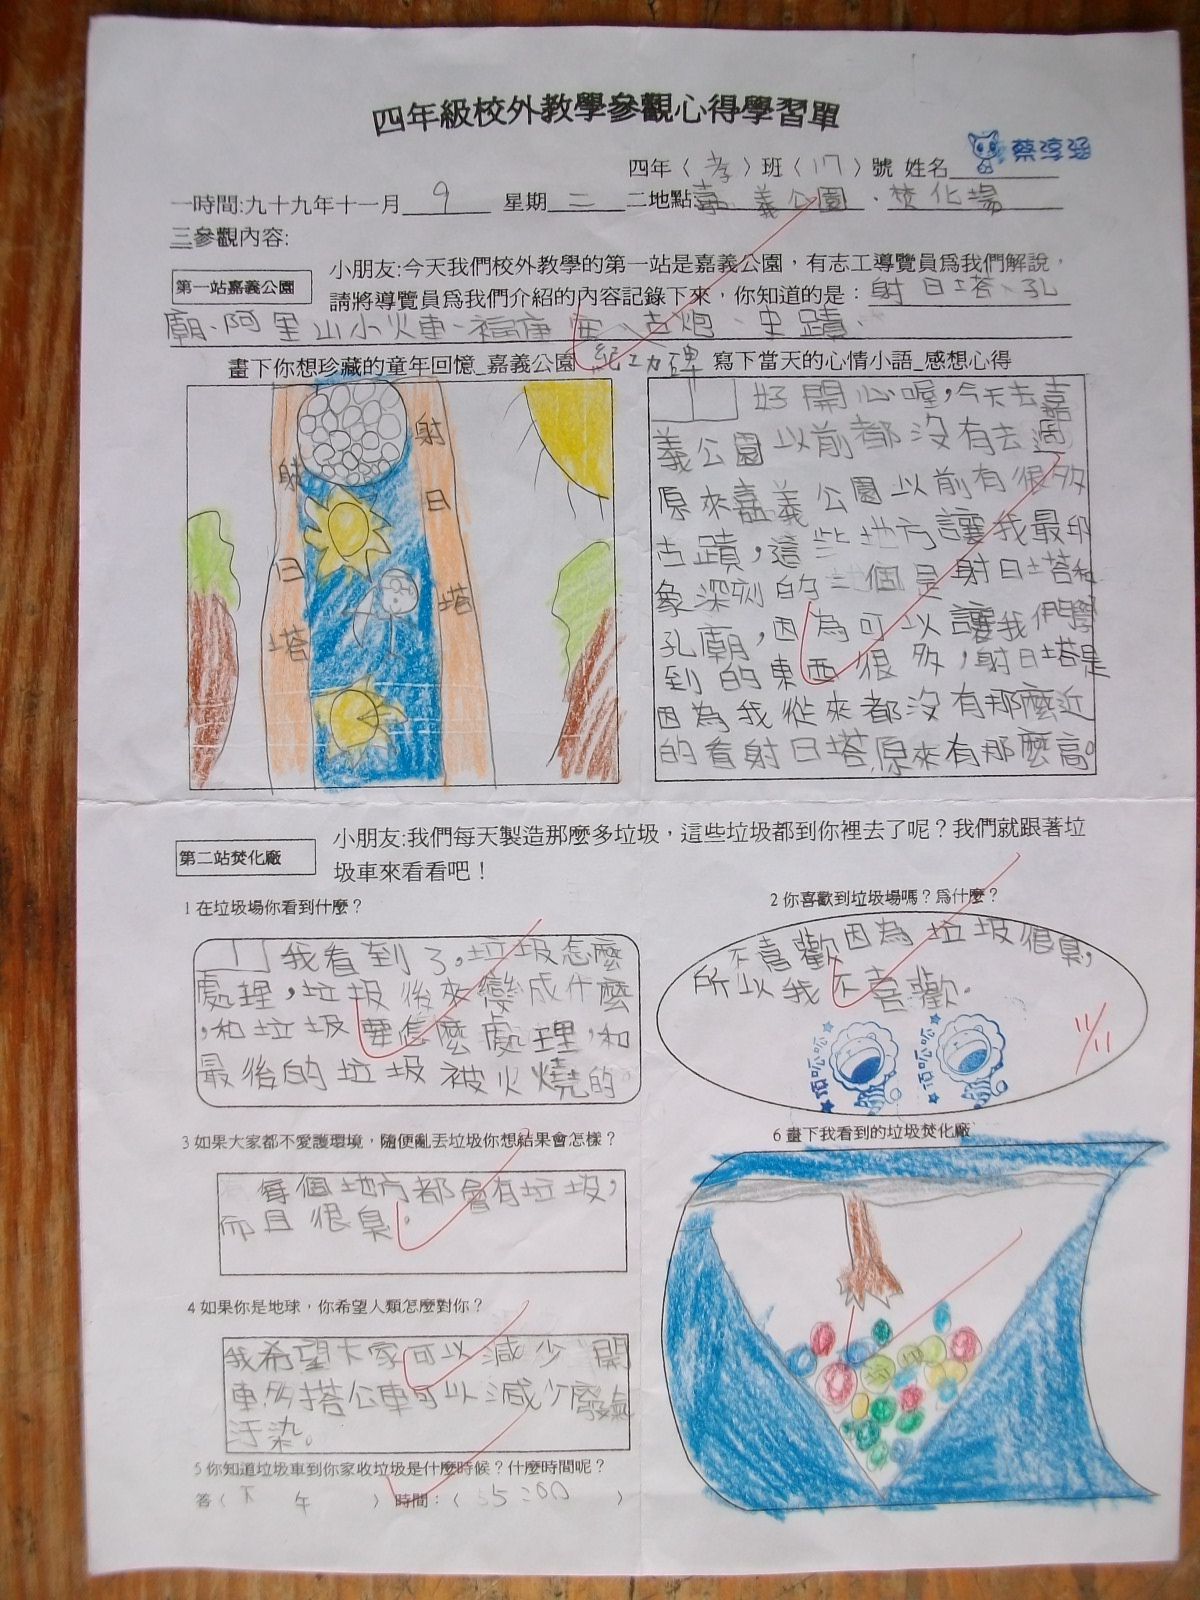 四年級校外教學參觀心得學習單
四年（孝）班（17）號 姓名 蔡淳涵
一時間:九十九年十一月 9 星期 二 二地點 嘉義公園、焚化場
三參觀內容:
第一站嘉義公園
小朋友:今天我們校外教學的第一站是嘉義公園，有志工導覽員為我們解說，
請將導覽員為我們介紹的內容記錄下來，你知道的是：射日塔、孔
廟、阿里山小火車、福康 古炮、史蹟、
紀功碑
畫下你想珍藏的童年回憶_嘉義公園
射日塔
射日塔
寫下當天的心情小語_感想心得
好開心喔，今天去嘉
義公園以前都沒有去過
原來嘉義公園以前有很多
古蹟，這些地方讓我最印
象深刻的 個是射日塔和
孔廟，因為可以讓我們學
到的東西很多，射日塔是
因為我從來都沒有那麼近
的看射日塔，原來有那麼高。
第二站焚化廠
小朋友:我們每天製造那麼多垃圾，這些垃圾都到你裡去了呢？我們就跟著垃
圾車來看看吧！
1 在垃圾場你看到什麼？
我看到了，垃圾怎麼
處理，垃圾後來變成什麼
，和垃圾要怎麼處理，和
最後的垃圾被火燒的。
2 你喜歡到垃圾場嗎？為什麼？
不喜歡因為垃圾很臭，
所以我不喜歡。
11/11
3 如果大家都不愛護環境，隨便亂丟垃圾你想結果會怎樣？
每個地方都會有垃圾，
而且很臭。
4 如果你是地球，你希望人類怎麼對你？
我希望大家可以減少開
車多搭公車可以減少廢氣
汙染。
5 你知道垃圾車到你家收垃圾是什麼時候？什麼時間呢？
答（下 午 ） 時間：（ 5:00 ）
6 畫下我看到的垃圾焚化廠